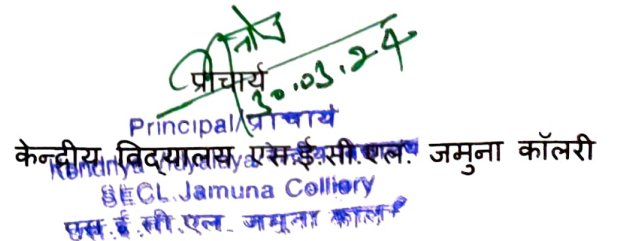 प्राचार्य
30.03.24
Principal/प्राचार्य
केन्द्रीय विद्यालय एस.ई.सी.एल. जमुना कॉलरी
Kendriya Vidyalaya
SECL Jamuna Colliery
एस.ई.सी.एल. जमुना कालरी